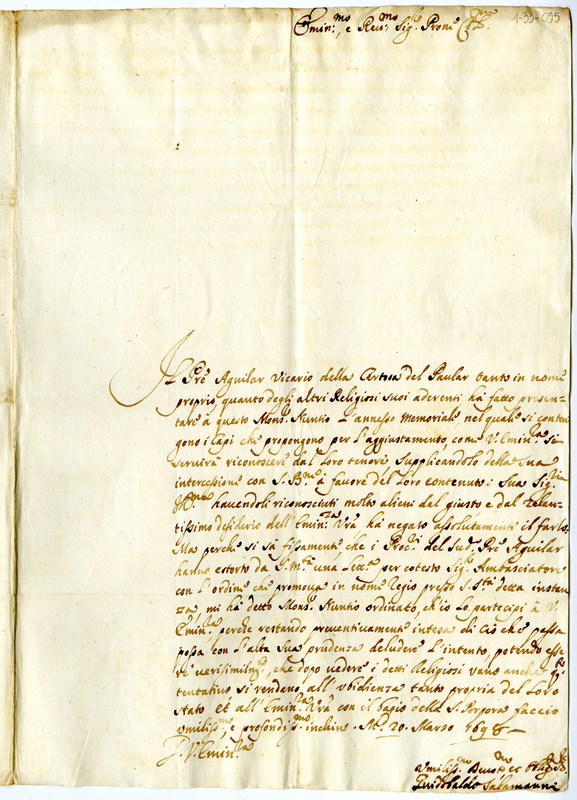 1-33-095
Emin:mo, e Reu:mo Sig.r Prone
Il Pre Aguilar Vicario della Certosa del Paular tanto in nome
proprio quanto degli altri Religiosi suoi aderenti hà fatto presen-
tare à questo Mons.r Nuntio l'annesso Memoriale nel quale si conten
gono i Capi che propongono per l'aggiustamento come V. Emin:za si
seruirà riconoscere dal loro tenore, supplicandolo della sua
intercessione con S. B.ne à fauore del loro contenuto; Sua Sig.ria
hauendoli riconosciuti molto alieni dal giusto e dal zelan-
tissimo desiderio dell'Emin:za Vra hà negato assolutamente il farlo.
Ma perche si sà fissamente che i Proc.ri del sud.o Pre Aguilar
hanno estorto da S. M.tà una lett.a per cotesto Sig.r Ambasciatore
con l'ordine che promoua in nome Regio presso S. S.tà detta instan
za, mi hà detto Mons.r Nuntio ordinato, ch'io lo partecipi à V.
Emin:za perche restando preuentiuamente intesa di ciò che passa
possa con l'alta sua prudenza deludere l'intento, potendo esse
re uerisimilm.te, che dopo uedere i detti Religiosi uano anche q.to
tentatiuo si rendano all'ubidienza tanto propria del loro
stato et all'Emin:za Vra con il bagio della S. Porpora faccio
umiliss:mo, e profondiss:mo inchino. M.d 20. Marzo 1698
D. V. Emin:za
Vmiliss:mo Deuo:mo et Oblig:mo S.re
Guidobaldo Salamanni